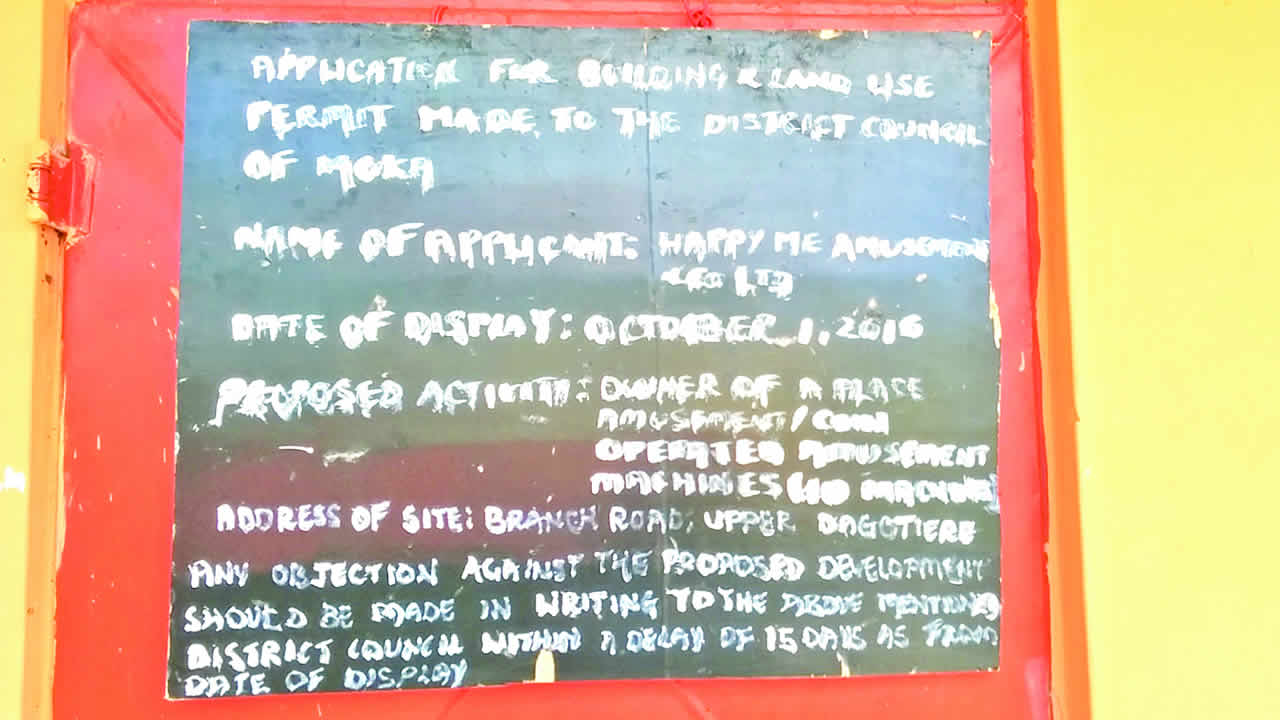 APPLICATION FOR BUILDING & LAND USE
PERMIT MADE TO THE DISTRICT COUNCIL
OF MOKA
NAME OF APPLICANT: HAPPY ME AMUSEMENT
& CO LTD
DATE OF DISPLAY: OCTOBER 1, 2016
PROPOSED ACTIVITY: OWNER OF A PLACE
AMUSEMENT/COIN
OPERATED AMUSEMENT
MACHINES (10 MACHINES)
ADDRESS OF SITE: BRANCH ROAD, UPPER DAGOTIERE
ANY OBJECTION AGAINST THE PROPOSED DEVELOPMENT
SHOULD BE MADE IN WRITING TO THE ABOVE MENTIONED
DISTRICT COUNCIL WITHIN A DELAY OF 15 DAYS AS FROM
DATE OF DISPLAY